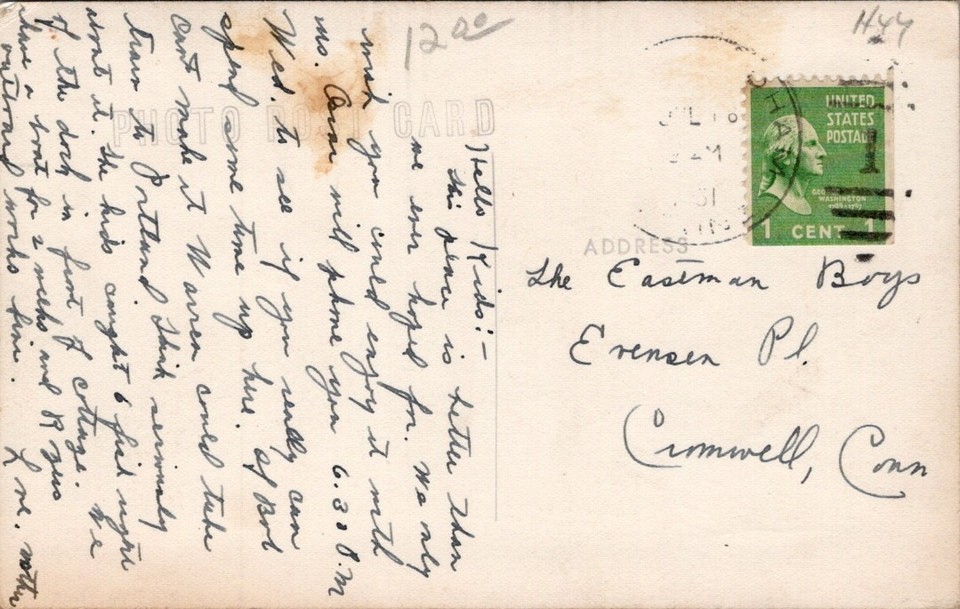 12 00
H44
PHOTO POST CARD
UNITED
STATES
POSTAGE
WASHINGTON
1 CENT 1
ADDRESS
The Eastman Boys
Evensen Pl.
Cromwell, Conn
Hello Kids:-
This place is better than
we ever hoped for. We only
wish you could enjoy it with
us. will phone you 6.30 P.M
Wed. to see if you really can
spend some time up here. If Bob
can't make it Waren could take
train to Portland. Think seriously
about it. The kids caught 6 fish right
off the dock in front of cottage. We
have a boat for 2 weeks and
outboard works fine. Love. Mother